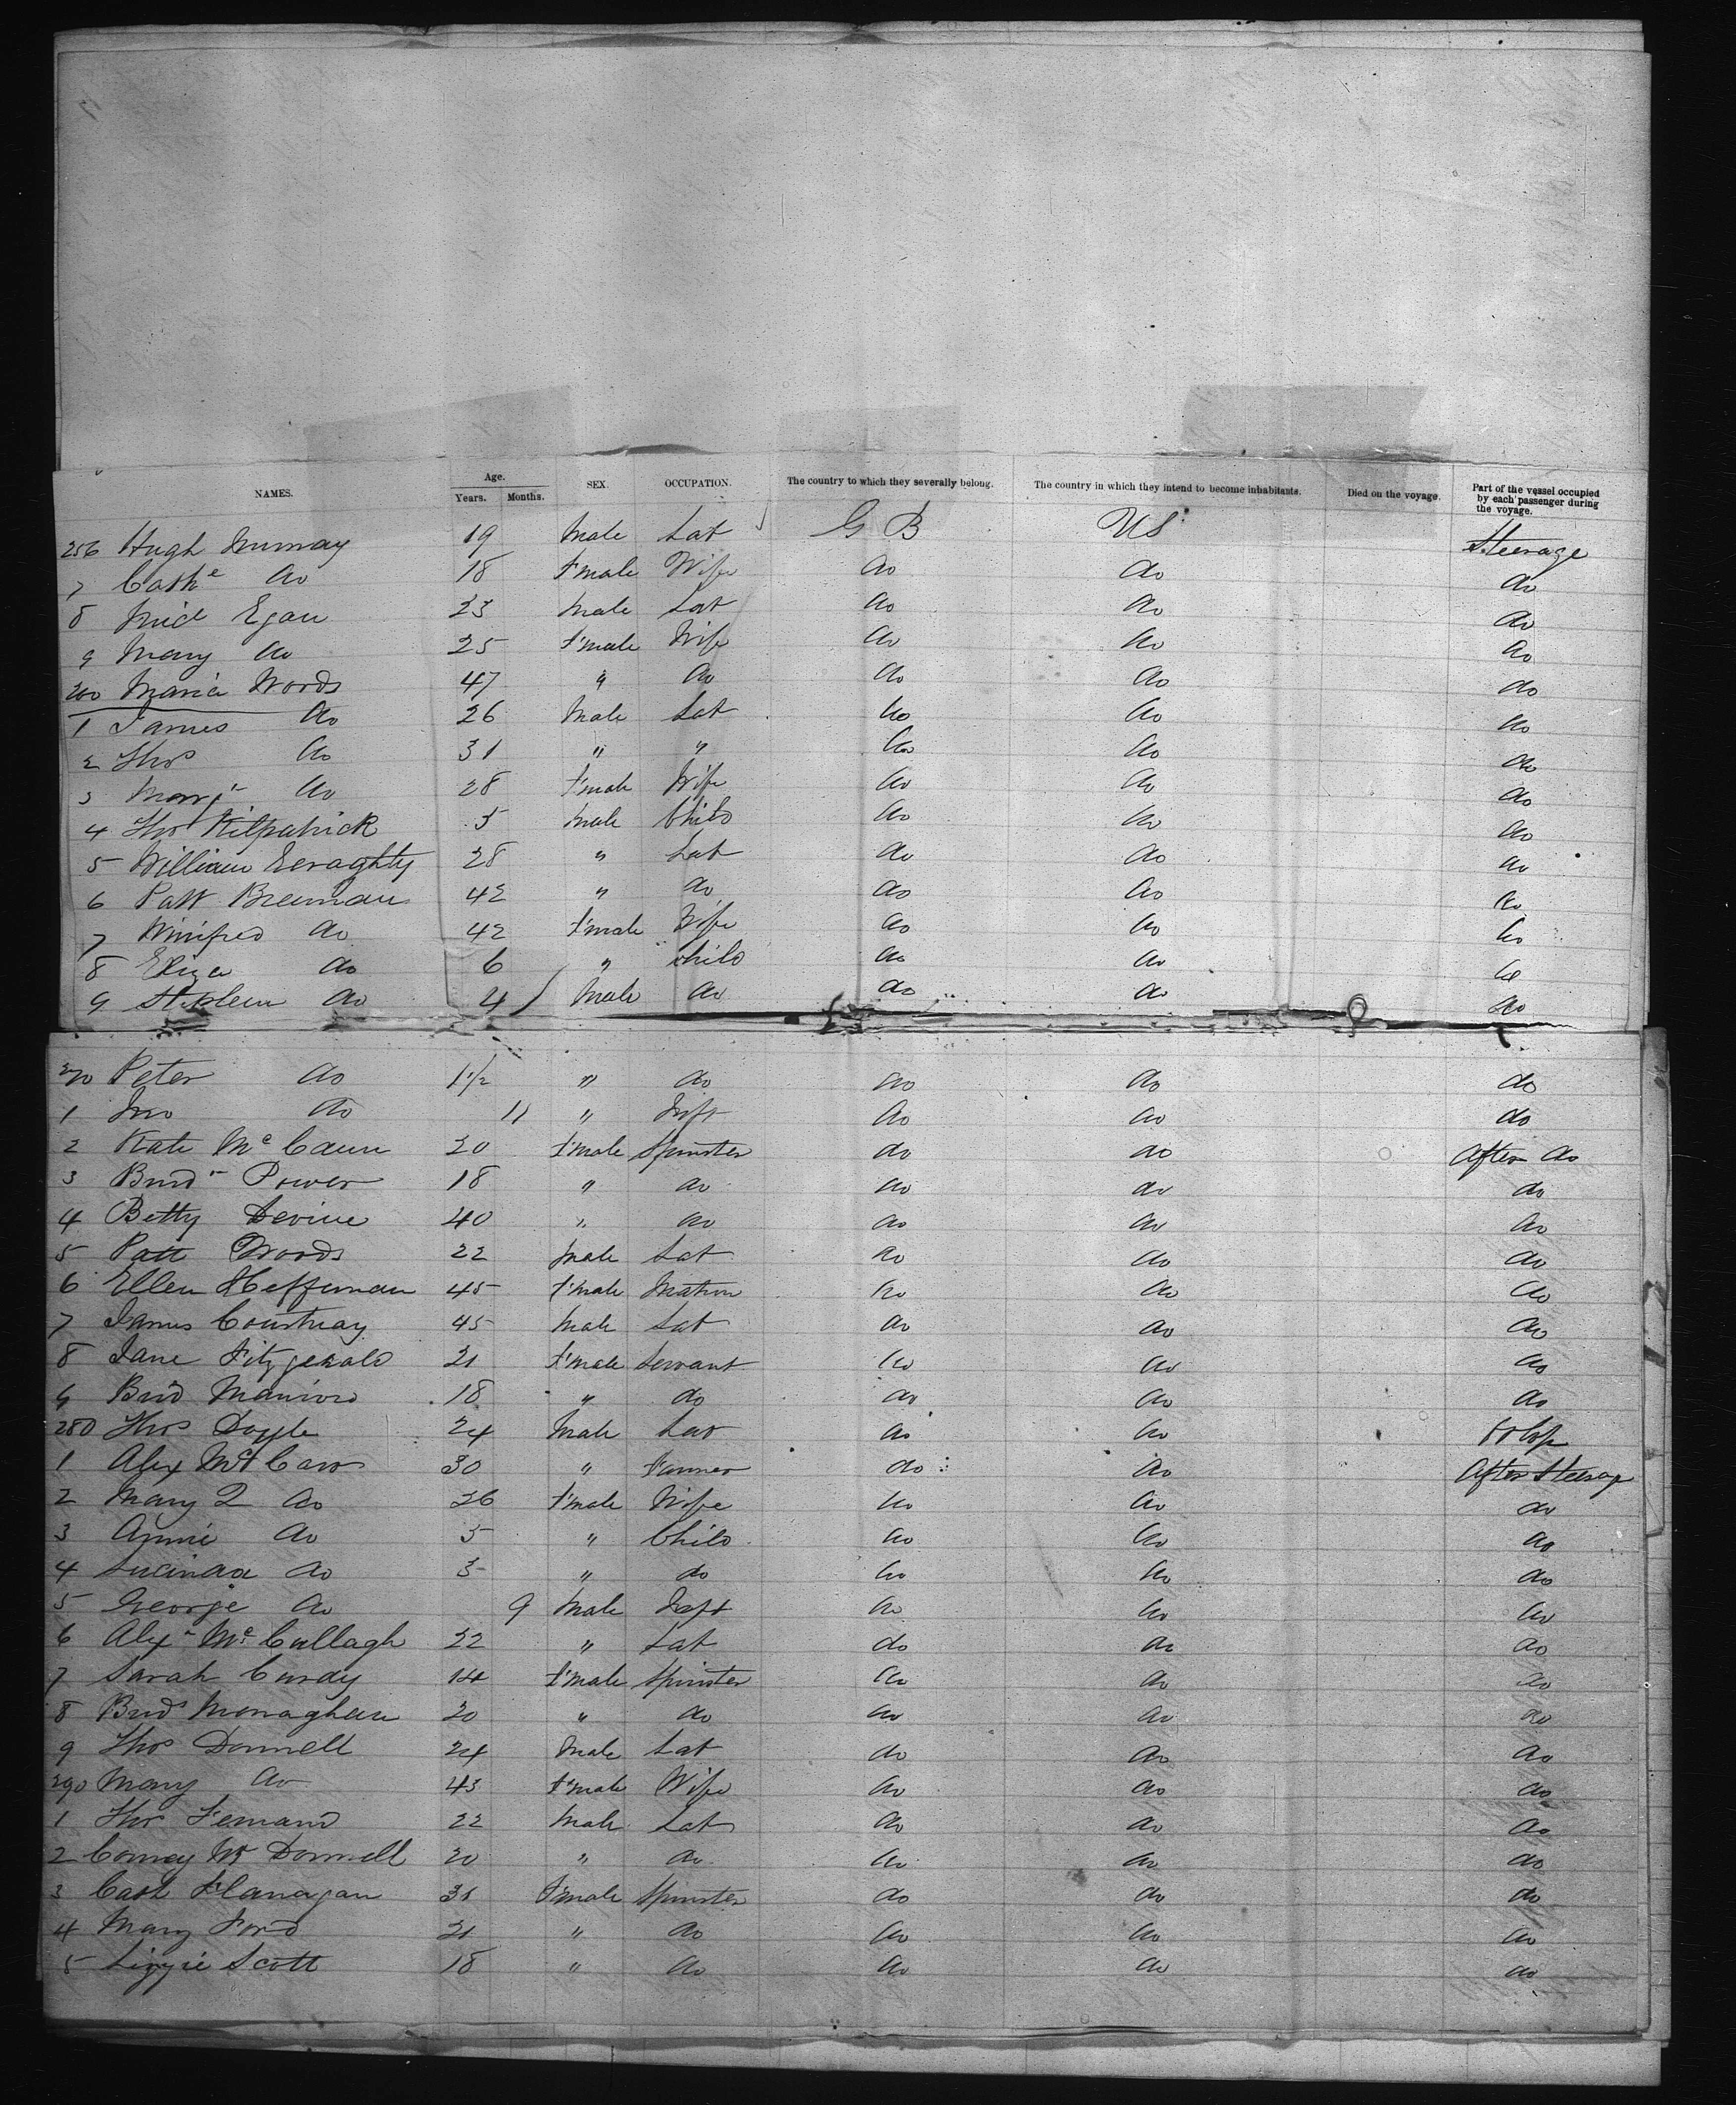 NAMES. Age. Years. Months. SEX. OCCUPATION. The country to which they severally belong. The country in which they intend to become inhabitants. Died on the voyage. Part of the vessel occupied by each passenger during the voyage.
256 Hugh Murray 19 Male Lab G B US Steerage
7 Cathe do 18 F'male Wife do do do
8 Mich Egan 23 Male Lab do do do
9 Mary do 25 F'male Wife do do do
260 Maria Woods 47 " do do do do
1 James do 26 Male Lab do do do
2 Thos do 31 " " do do do
3 Margt do 28 F'male Wife do do do
4 Thos Kilpatrick 5 Male Child do do do
5 William Geraghty 28 " Lab do do do
6 Patt Brennan 42 " do do do do
7 Winifred do 42 F'male Wife do do do
8 Eliza do 6 " Child do do do
9 Stephen do 4 Male do do do do
270 Peter do 1 1/2 " do do do do
1 Jno do 11 " Inft do do do
2 Kate McCann 20 F'male Spinster do do After do
3 Brid Power 18 " do do do do
4 Betty Devine 40 " do do do do
5 Patt Woods 22 Male Lab do do do
6 Ellen Heffernan 45 F'male Matron do do do
7 James Courtnay 45 Male Lab do do do
8 Jane Fitzgerald 21 F'male Servant do do do
9 Brid 18 " do do do do
280 Thos Doyle 24 Male Lab do do
1 Alex McCaw 30 " Farmer do do After Steerage
2 Mary J do 26 F'male Wife do do do
3 Annie do 5 " Child do do do
4 Lucinda do 3 " do do do do
5 George do 9 Male Inft do do do
6 Alexr McCullagh 22 " Lab do do do
7 Sarah Curdy 14 F'male Spinster do do do
8 Brid Monaghan 20 " do do do do
9 Thos Donnell 24 Male Lab do do do
290 Mary do 43 F'male Wife do do do
1 Thos 22 Male Lab do do do
2 Corney McDonnell 20 " do do do do
3 Cath Flanagan 31 F'male Spinster do do do
4 Mary Ford 21 " do do do do
5 Lizzie Scott 18 " do do do do